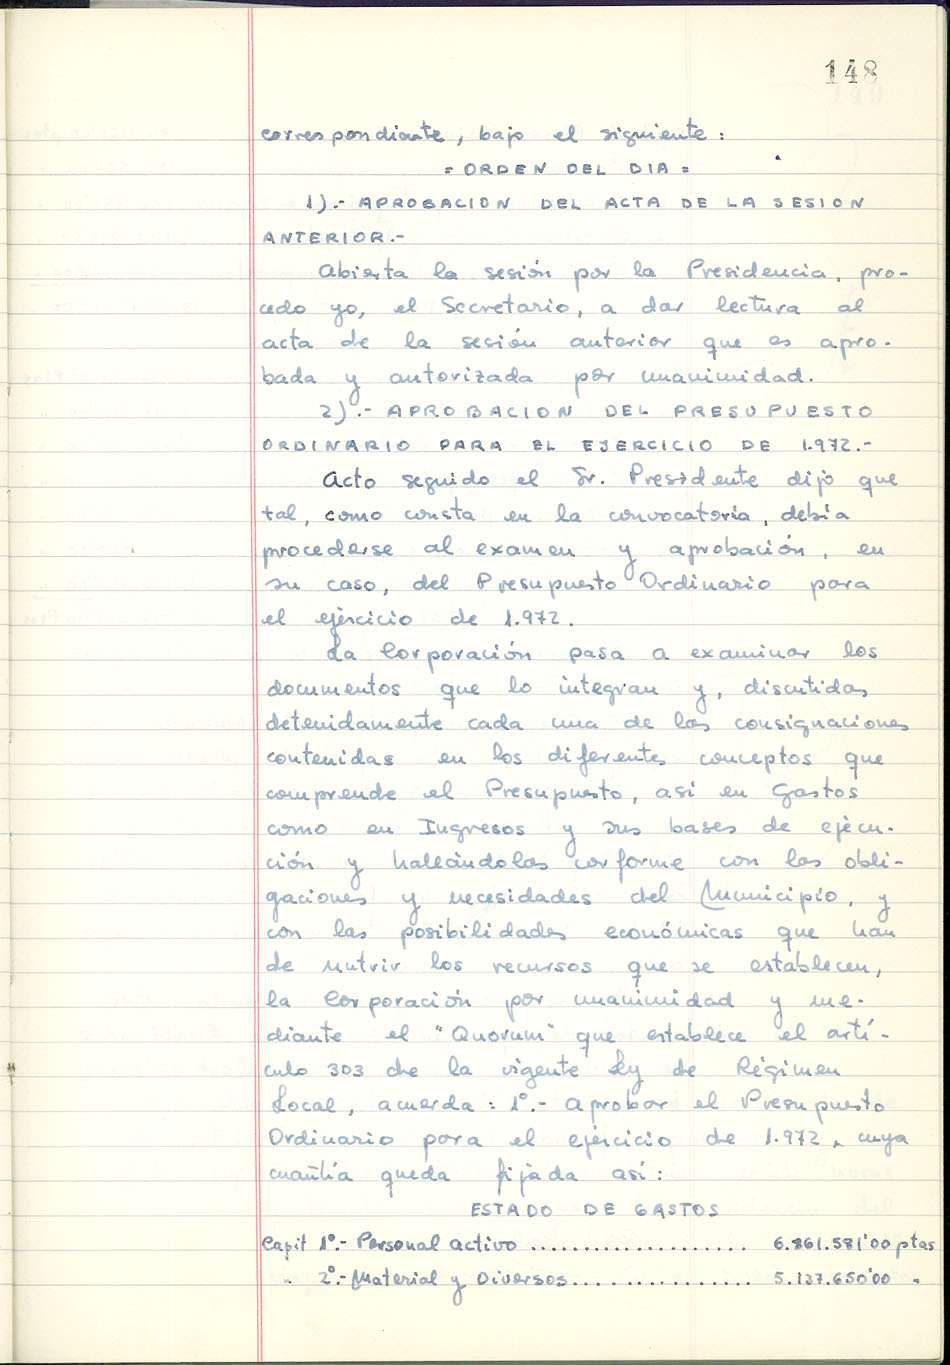 148
correspondiante, bajo el siguiente:
= ORDEN DEL DIA =
1).- APROBACION DEL ACTA DE LA SESION
ANTERIOR.-
Abierta la sesión por la Presidencia, pro-
cedo yo, el Secretario, a dar lectura al
acta de la sesión anterior que es apro-
bada y autorizada por unanimidad.
2).- APROBACION DEL PRESUPUESTO
ORDINARIO PARA EL EJERCICIO DE 1.972.-
Acto seguido el Sr. Presidente dijo que
tal, como consta en la convocatoria, debia
procederse al examen y aprobación, en
su caso, del Presupuesto Ordinario para
el ejercicio de 1.972.
La Corporación pasa a examinar los
documentos que lo integran y, discutidas
detenidamente cada una de las consignaciones
contenidas en los diferentes conceptos que
comprende el Presupuesto, asi en Gastos
como en Ingresos y sus bases de ejecu-
ción y hallándolas conforme con las obli-
gaciones y necesidades del Municipio, y
con las posibilidades económicas que han
de nutrir los recursos que se establecen,
la Corporación por unanimidad y me-
diante el "Quorum" que establece el artí-
culo 303 de la vigente Ley de Régimen
Local, acuerda: 1º.- aprobar el Presupuesto
Ordinario para el ejercicio de 1.972, cuya
cuantía queda fijada así:
ESTADO DE GASTOS
Capit 1º.- Personal activo .................... 6.861.581'00 ptas
" 2º.- Material y Diversos................ 5.137.650'00 "